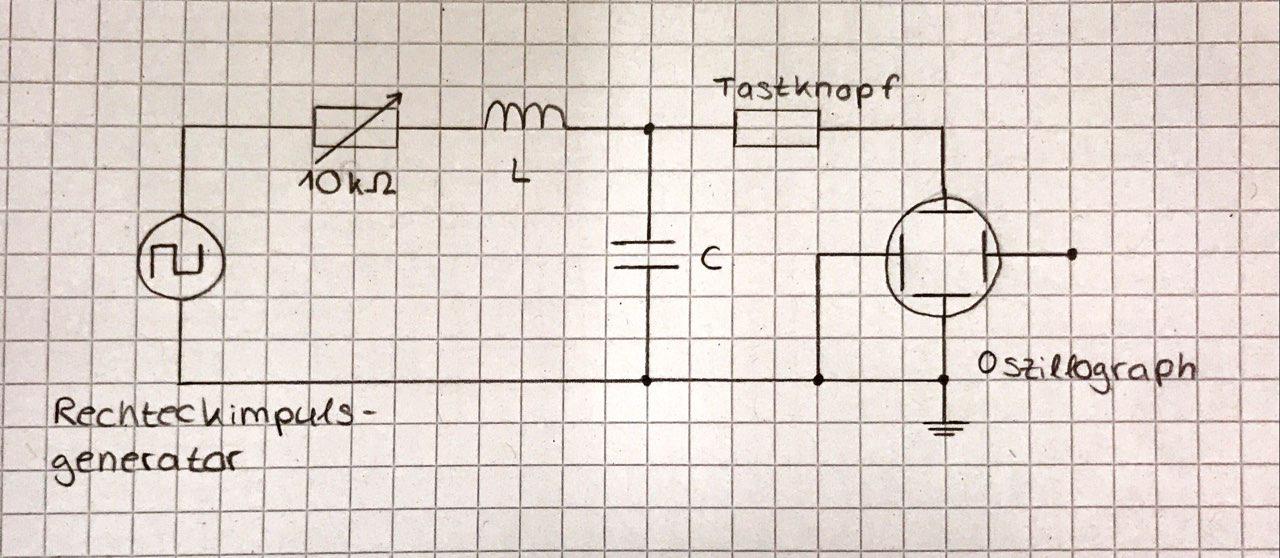 Tastknopf
10kΩ
L
C
Oszillograph
Rechteckimpuls-
generator